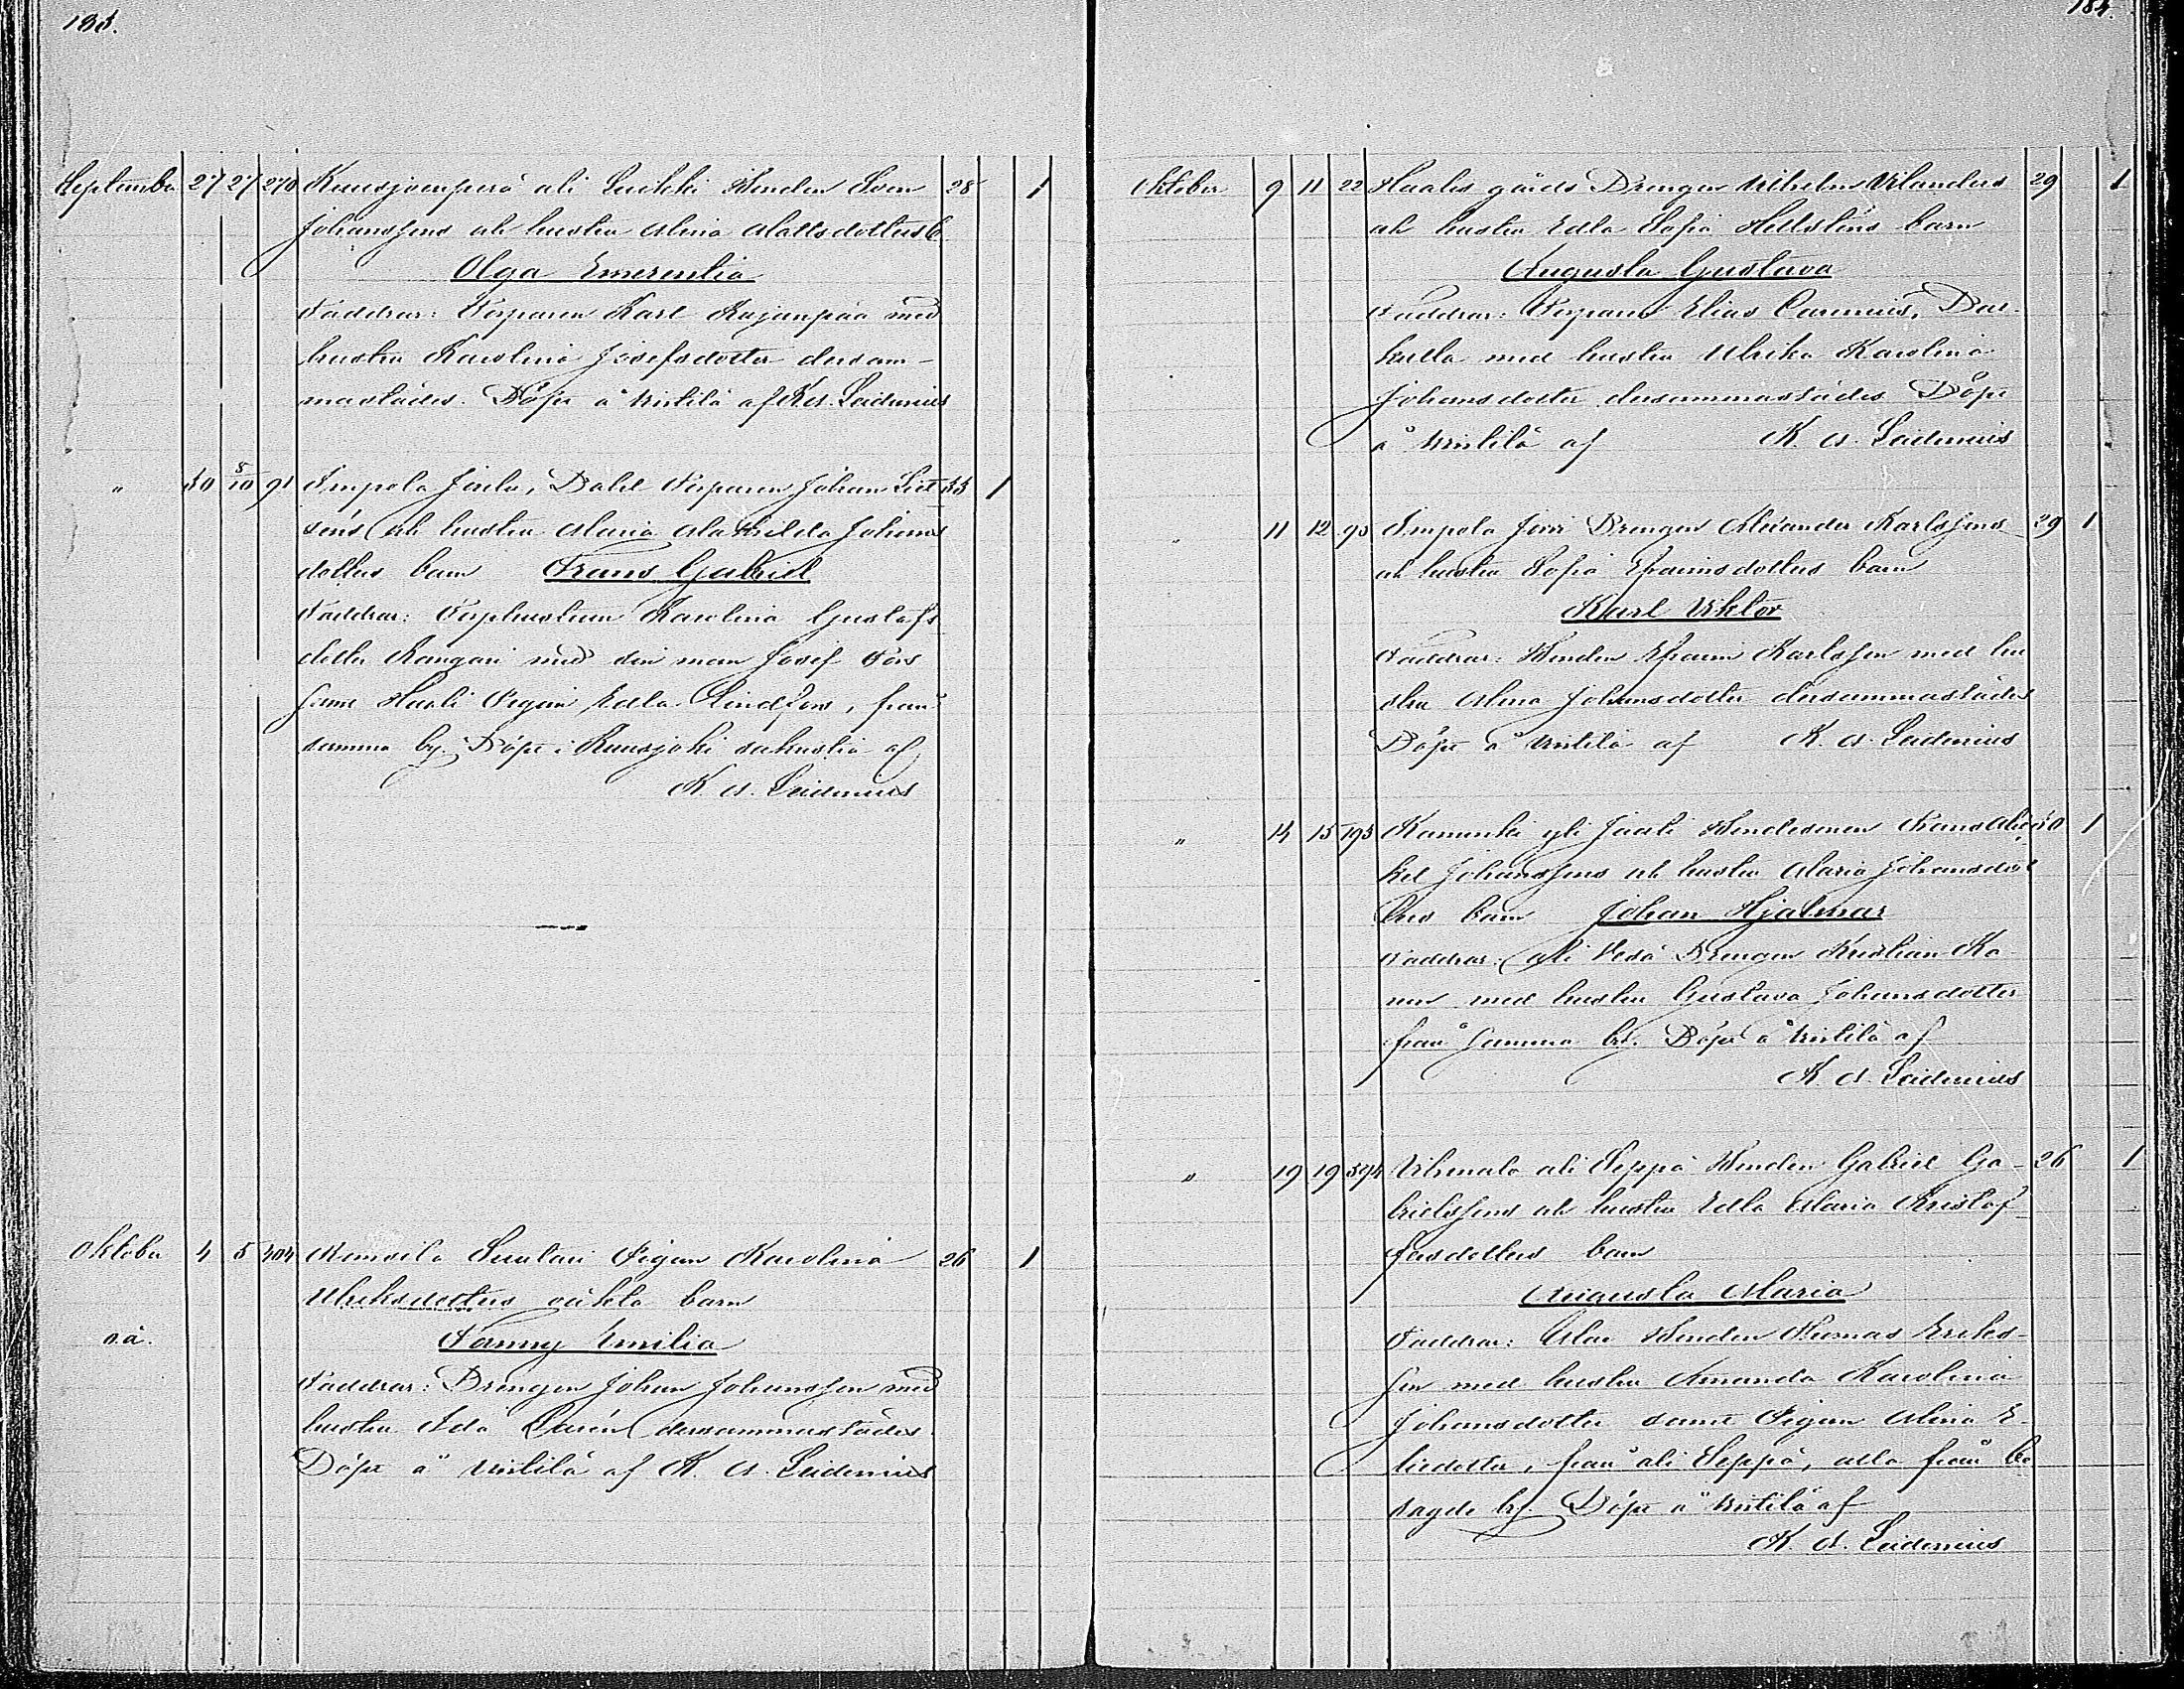 183.
September 27 27 270 Kuusjoenperä ali Seikki Bonden Sven 28 1
Johanssons och hustru Alina Mattsdotters b.
Olga Emerentia
Faddrar: Torparen Karl Kujanpää med
hustru Karolina Josefsdotter dersam-
mastädes. Döpt å Wistilä af K. A. Leidenius
" 30 5/10 91 Impola Jaila, Dahl Torparen Johan Liet 33 1
séns och hustru Maria Mathilda Johans
dotters barn Frans Gabriel
Faddrar: Torphustrun Karolina Gustafs
dotter Kangari med sin man Josef Fors
samt Haali Pigan Edla Lindfors, från
samma by. Döpt i Kuusjoki sakristia af
K. A. Leidenius
Oktober 4 5 404 Suutari Pigan Karolina 26 1
Ulriksdotters oäkta barn
o.ä. Fanny Emilia
Faddrar: Drengen Johan Johansson med
hustru Ida dersammastädes.
Döpt å Wistilä af K. A. Leidenius
184.
Oktober 9 11 22 Haalis gårds Drengen Vilhelm Vilanders 29 1
och hustru Edla Sofia Hellsténs barn
Augusta Gustava
Faddrar: Torparen Elias Carenius, Dal-
kulla med hustru Ulrika Karolina
Johansdotter dersammastädes. Döpt
å Wistilä af K. A. Leidenius
" 11 12 93 Impola Jirri Drengen Alexander Karlssons 29 1
och hustru Sofia Efraimsdotters barn
Karl Viktor
Faddrar: Bonden Efraim Karlsson med hu
stru Alma Johansdotter dersammastädes
Döpt å Wistilä af K. A. Leidenius
" 14 15 193 Kanunki yli Jaali Bondesonen Frans Mi- 30 1
kel Johanssons och hustru Maria Johansdot
ters barn Johan Hjalmar
Faddrar: Ali Vesa Drengen Kristian Ka
nen med hustru Gustava Johansdotter
från samma by. Döpt å Wistilä af
K. A. Leidenius
" 19 19 394 Vihmalo ali Seppä Bonden Gabriel Ga- 26 1
brielssons och hustru Edla Maria Kristof
fersdotters barn
Augusta Maria
Faddrar: Bonden Thomas Eriks-
son med hustru Amanda Karolina
Johansdotter samt Pigan Alina E-
liedotter, från ali Seppä, alla från be
sagde by. Döpt å Wistilä af
K. A. Leidenius